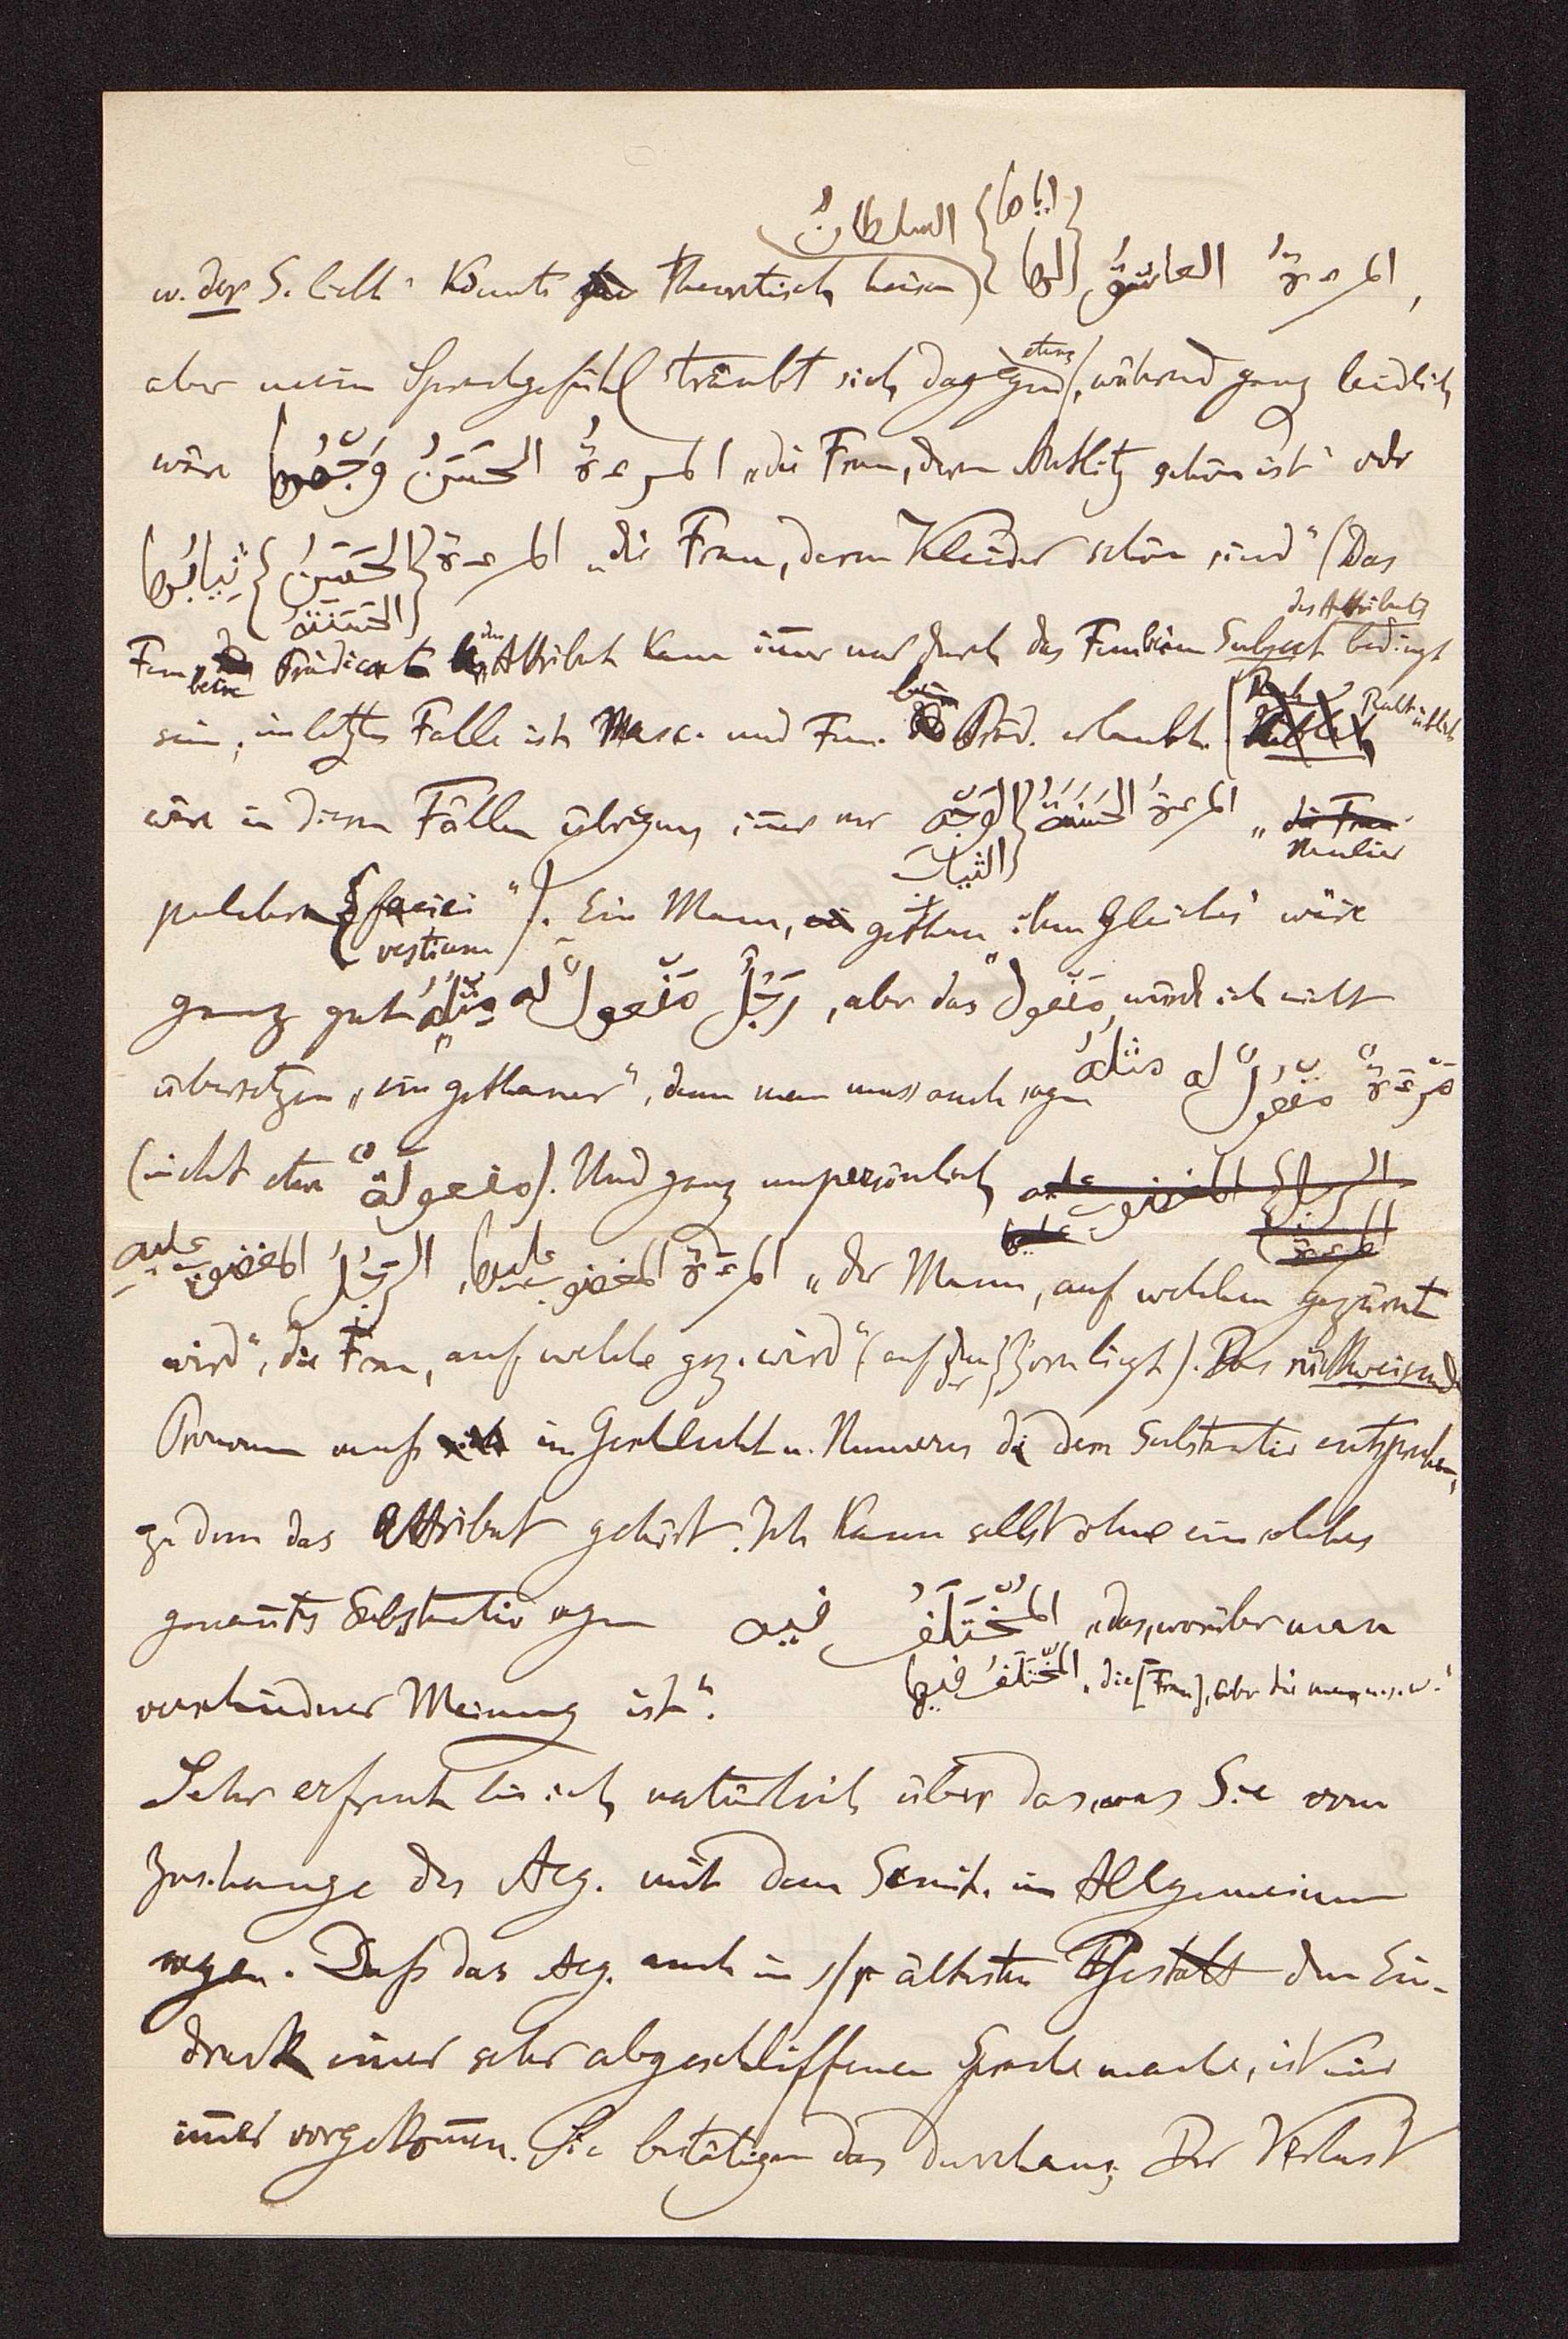 السلطانُ { اياها
w. der S. liebt“ könnte theoretisch heissen المرءةُ العاشقُ لها,
aber mein Sprachgefühl sträubt sich dagegen etwas, während ganz leidlich
wäre المرءةُ الحَسَنُ وَجْهُها „die Frau, deren Antlitz schön ist“ oder
المرءة { الحَسَنُ } ثِيابُها „die Frau, deren Kleider schön sind“ (Das
الحَسَنَةُ
des Attributs
Fem. beim Prädicat des Attribut kann immer nur durch das Feminin Subject bedingt
sein; im letzten Falle ist Masc. und Fem. beim Präd. erlaubt.
wäre in diesen Fällen übrigens immer nur المرءةُ الحَسَنَةُ { الوَجْهِ „die Frau
الثياب
Mulier
pulchra { faciei “). „Ein Mann, gethan ihm Gleiches“ wäre
vestium
ganz gut رَجُلٌ مَفْعولٌ له مِثْلُهُ, aber das مَفْعول würde ich nicht
übersetzen „ein gethaner“, denn man muss auch sagen مَرْءَةٌ مَفْعولٌ له مثلُهُ
(nicht etwa مفعولَةٌ). Und ganz unpersönlich الرجل المغضوب عليه
المرءة عليها
المرءَةُ المغضوب عليها, الرَجُلُ المغضوب عليه „der Mann, auf welchen gezürnt
wird“, die Frau, auf welche gez. wird“ (auf dem der Zorn liegt). Das rückweisende
Pronomen muss im Geschlecht u. Numerus dem Substantiv entsprechen,
zu dem das Attribut gehört. Ich kann selbst ohne ein solches
genanntes Substantiv sagen المُخْتَلَفُ فيه „das, worüber man
verschiedner Meinung ist“. المُخْتَلَفُ فيها „die [Frau], über die man u. s. w.“
Sehr erfreut bin ich natürlich über das, was Sie vom
Zus.hange des Aeg. mit dem Semit. im Allgemeinen
sagen. Dass das Aeg. auch in sr ältesten Gestalt den Ein-
druck einer sehr abgeschliffenen Sprache mache, ist mir
immer vorgekommen. Sie bestätigen das durchaus. Der Verlust